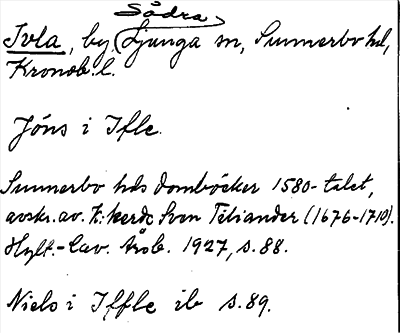 Ivla, by, Södra Ljunga sn, Sunnerbo hd,
Kronob. l.
Jöns i Ifle
Sunnerbo hds domböcker 1580-talet,
avskr. av K:herde Sven Tiliander (1676-1710).
Hylt.-Cav. Årsb. 1927, s. 88.
Niels i Iffle ib s. 89.